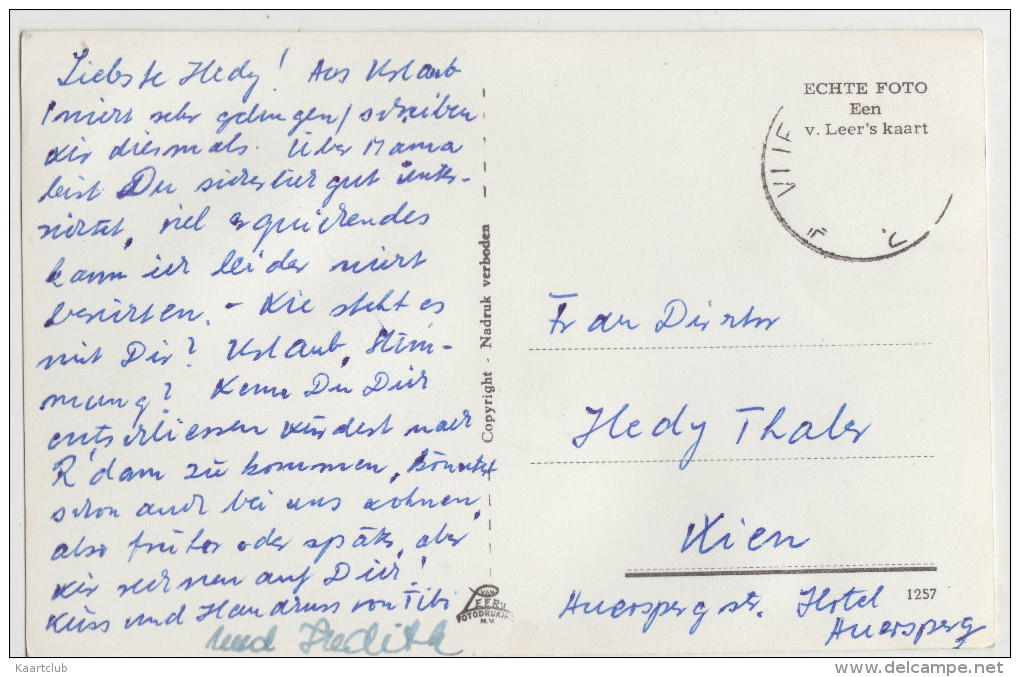 Liebste Hedy! Aus Urlaub
(nicht sehr gelungen) schreiben
wir diesmals. Über Mama
bist Du sicherlich gut unter-
richtet, viel erquickendes
kann ich leider nicht
berichten. - Wie steht es
mit Dir? Urlaub, Stim-
mung? Wenn Du Dich
entschliessen würdest nach
R'dam zu kommen, könntest
schon auch bei uns wohnen,
also früher oder später, aber
wir rechnen auf Dich!
Küss und Handkuss von Tibi
und Judith
Copyright - Nadruk verboden
VAN LEER'S FOTODRUKIN N.V.
ECHTE FOTO
Een
v. Leer's kaart
Frau Direktor
Hedy Thaler
Wien
1257
Auersperg str. Hotel
Auersperg
Kaartclub
www.delcampe.net